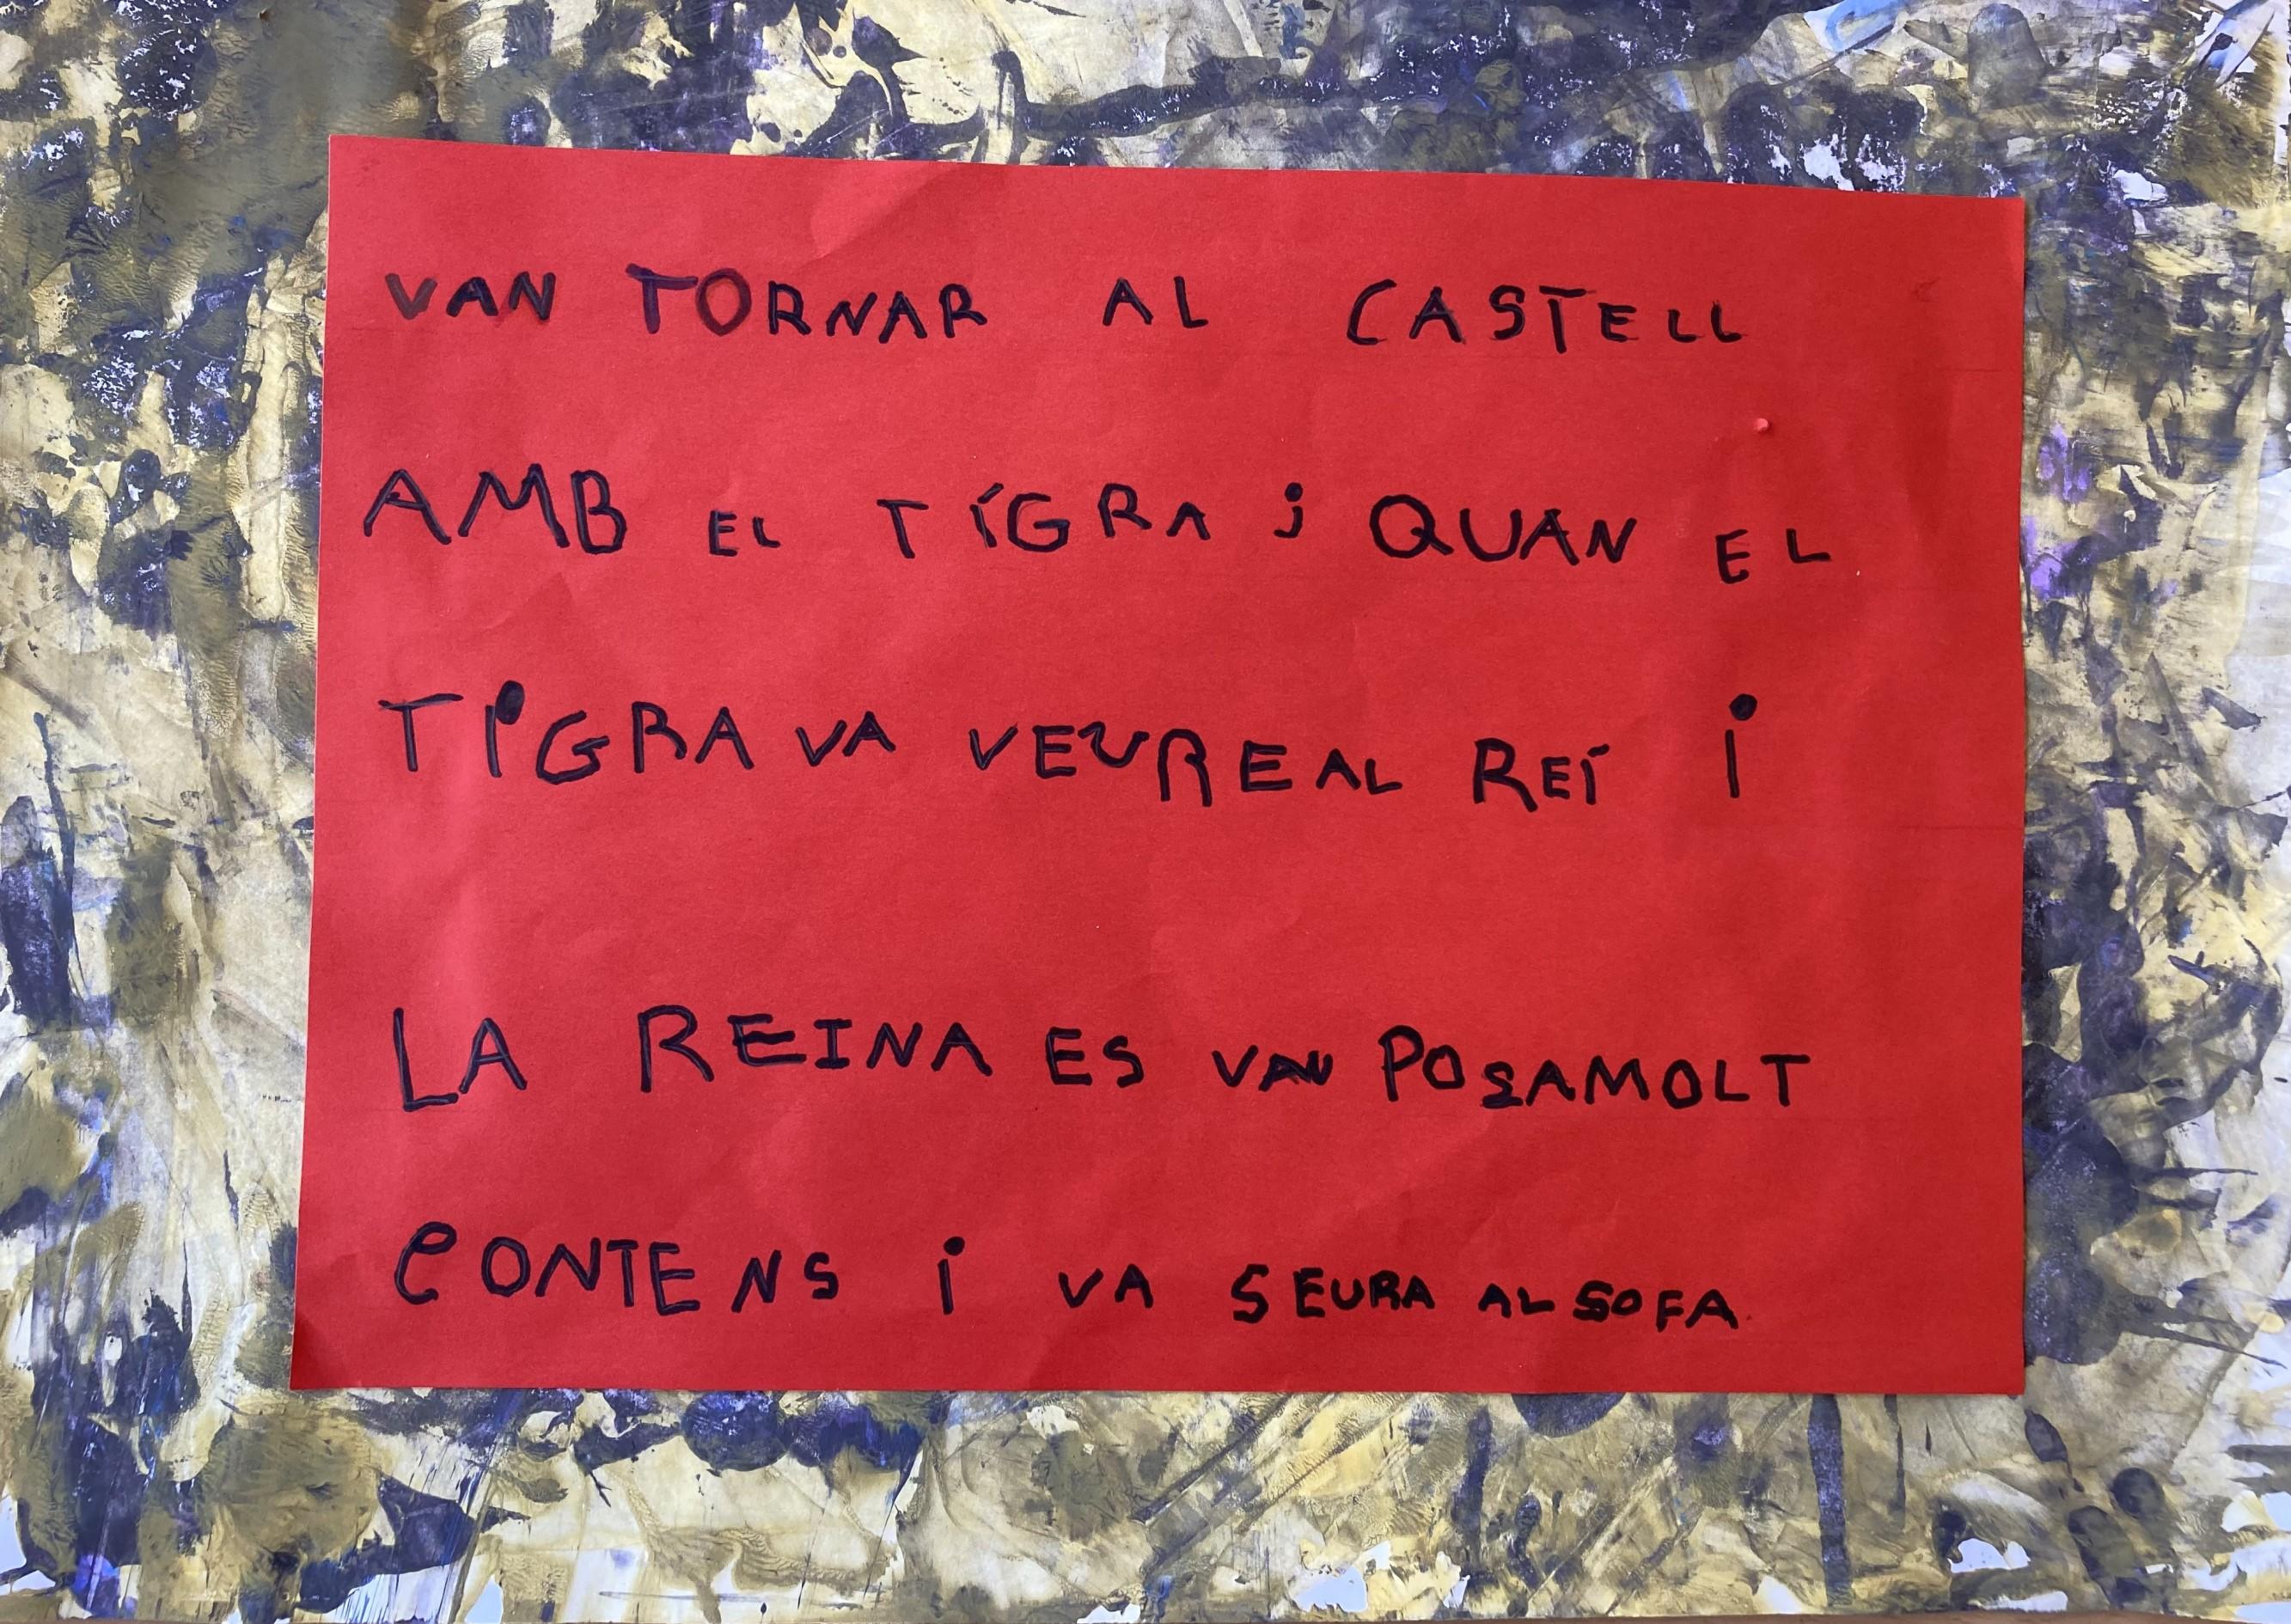 VAN TORNAR AL CASTELL
AMB EL TÍGRA i QUAN EL
TiGRA VA VEUREAL REÍ i
LA REINA ES VAN POSAMOLT
CONTENS i VA SEURA AL SOFA